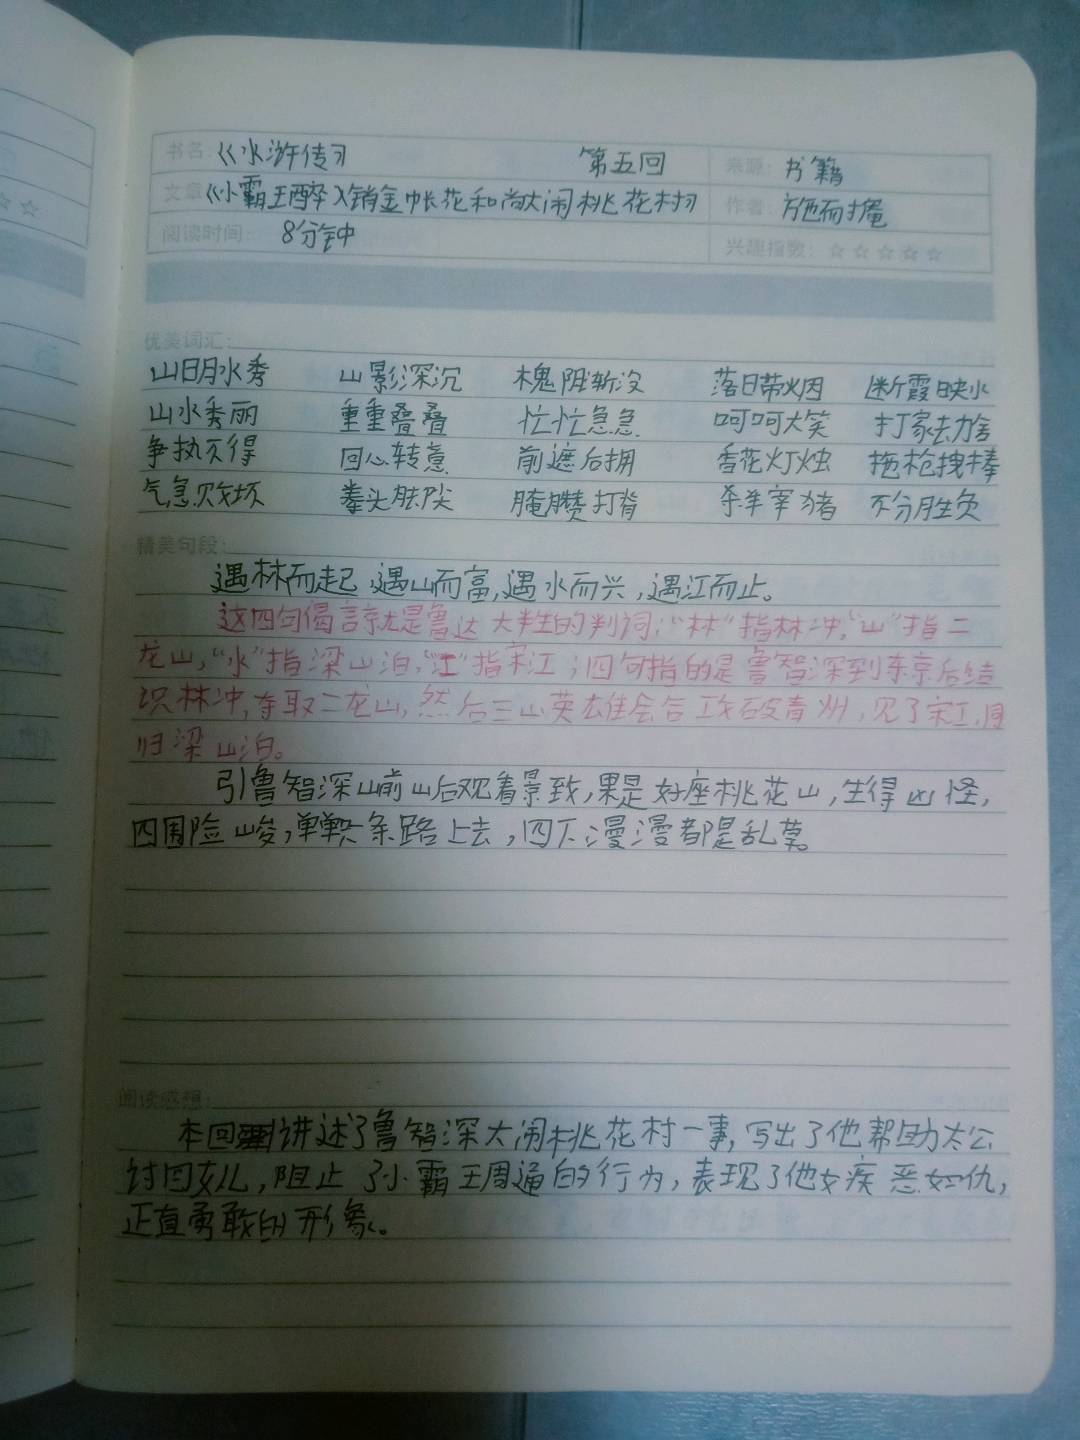 书名：《水浒传》 第五回 来源：书籍
文章《小霸王醉入销金帐花和尚大闹桃花村》 作者：施耐庵
阅读时间： 8分钟 兴趣指数：☆☆☆☆☆
优美词汇：
山明水秀 山影深沉 槐阴渐没 落日带烟 断霞映水
山水秀丽 重重叠叠 忙忙急急 呵呵大笑 打家劫舍
争执不得 回心转意 前遮后拥 香花灯烛 拖枪拽棒
气急败坏 拳头脚尖 腌臜打脊 杀羊宰猪 不分胜负
精美句段：
遇林而起，遇山而富，遇水而兴，遇江而止。
这四句偈言就是鲁达大半生的判词；“林”指林冲，“山”指二
龙山，“水”指梁山泊，“江”指宋江；四句指的是鲁智深到东京后结
识林冲，夺取二龙山，然后三山英雄会合攻破青州，见了宋江，同
归梁山泊。
引鲁智深山前山后观看景致，果是好座桃花山，生得凶怪，
四围险峻，单单只一条路上去，四下漫漫都是乱草。
阅读感想：
本回讲述了鲁智深大闹桃花村一事，写出了他帮助太公
讨回女儿，阻止了小霸王周通的行为，表现了他女疾恶如仇，
正直勇敢的形象。